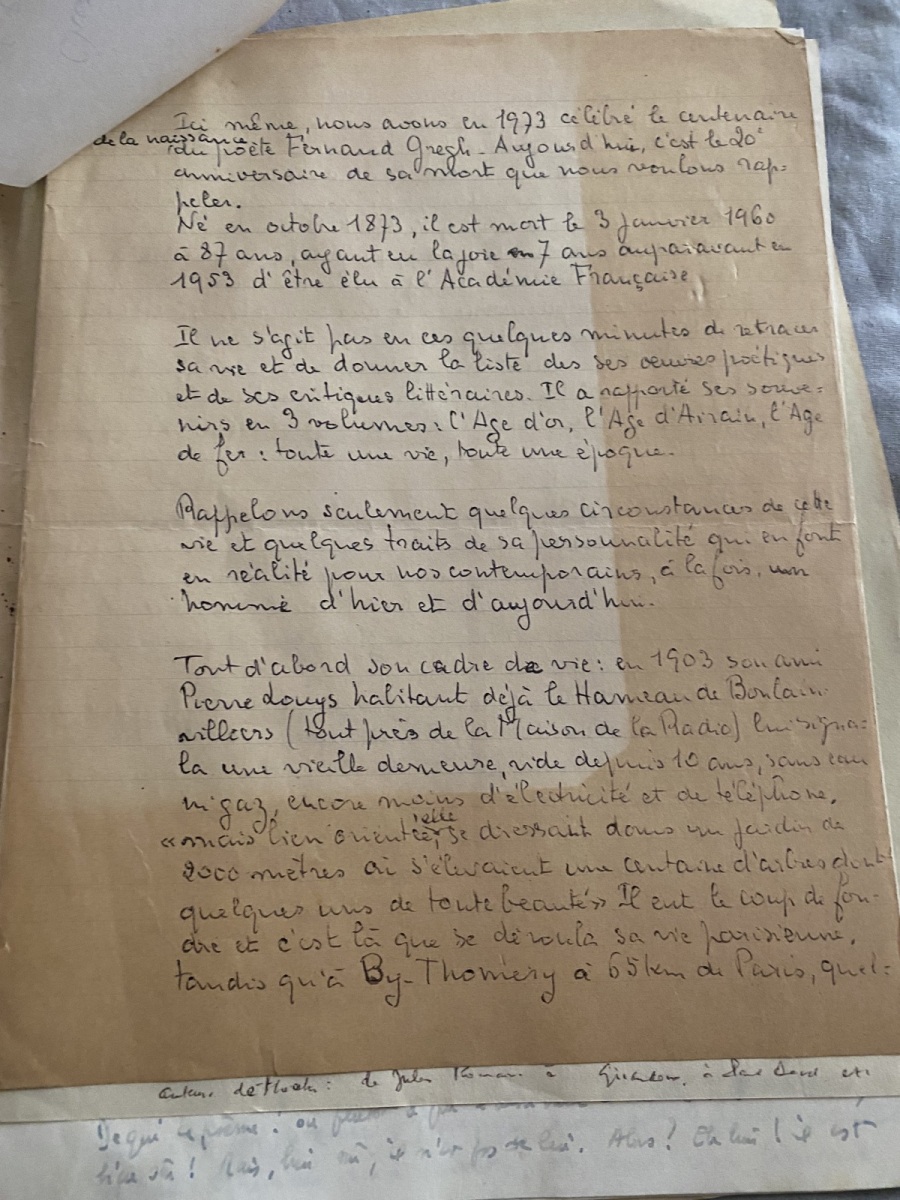 Ici même, nous avons en 1973 célébré le centenaire
de la naissance du poète Fernand Gregh - Aujourd'hui, c'est le 20e
anniversaire de sa mort que nous voulons rap-
peler.
Né en octobre 1873, il est mort le 3 Janvier 1960
à 87 ans, ayant eu la joie 7 ans auparavant en
1953 d'être élu à l'Académie Française
Il ne s'agit pas en ces quelques minutes de retracer
sa vie et de donner la liste des ses œuvres poétiques
et de ses critiques littéraires. Il a rapporté ses souve-
nirs en 3 volumes : l'Age d'or, l'Age d'Airain, l'Age
de fer : toute une vie, toute une époque.
Rappelons seulement quelques circonstances de cette
vie et quelques traits de sa personnalité qui en font
en réalité pour nos contemporains, à la fois, un
homme d'hier et d'aujourd'hui.
Tout d'abord son cadre de vie : en 1903 son ami
Pierre Louys habitant déjà le Hameau de Boulain
villiers (tout près de la Maison de la Radio) lui signa-
la une vieille demeure, vide depuis 10 ans, sans eau
ni gaz, encore moins d'électricité et de téléphone,
« mais bien orientée, elle se dressait dans un jardin de
2000 mètres où s'élevaient une centaine d'arbres dont
quelques uns de toute beauté » Il eut le coup de fou-
dre et c'est là que se déroula sa vie parisienne,
tandis qu'à By-Thomery à 65 km de Paris, quel-
de Jules Romains à Giraudoux, à
De qui
bien sûr ! Mais, bien sûr, il n'est pas de lui. Alors ? Eh bien ! il est